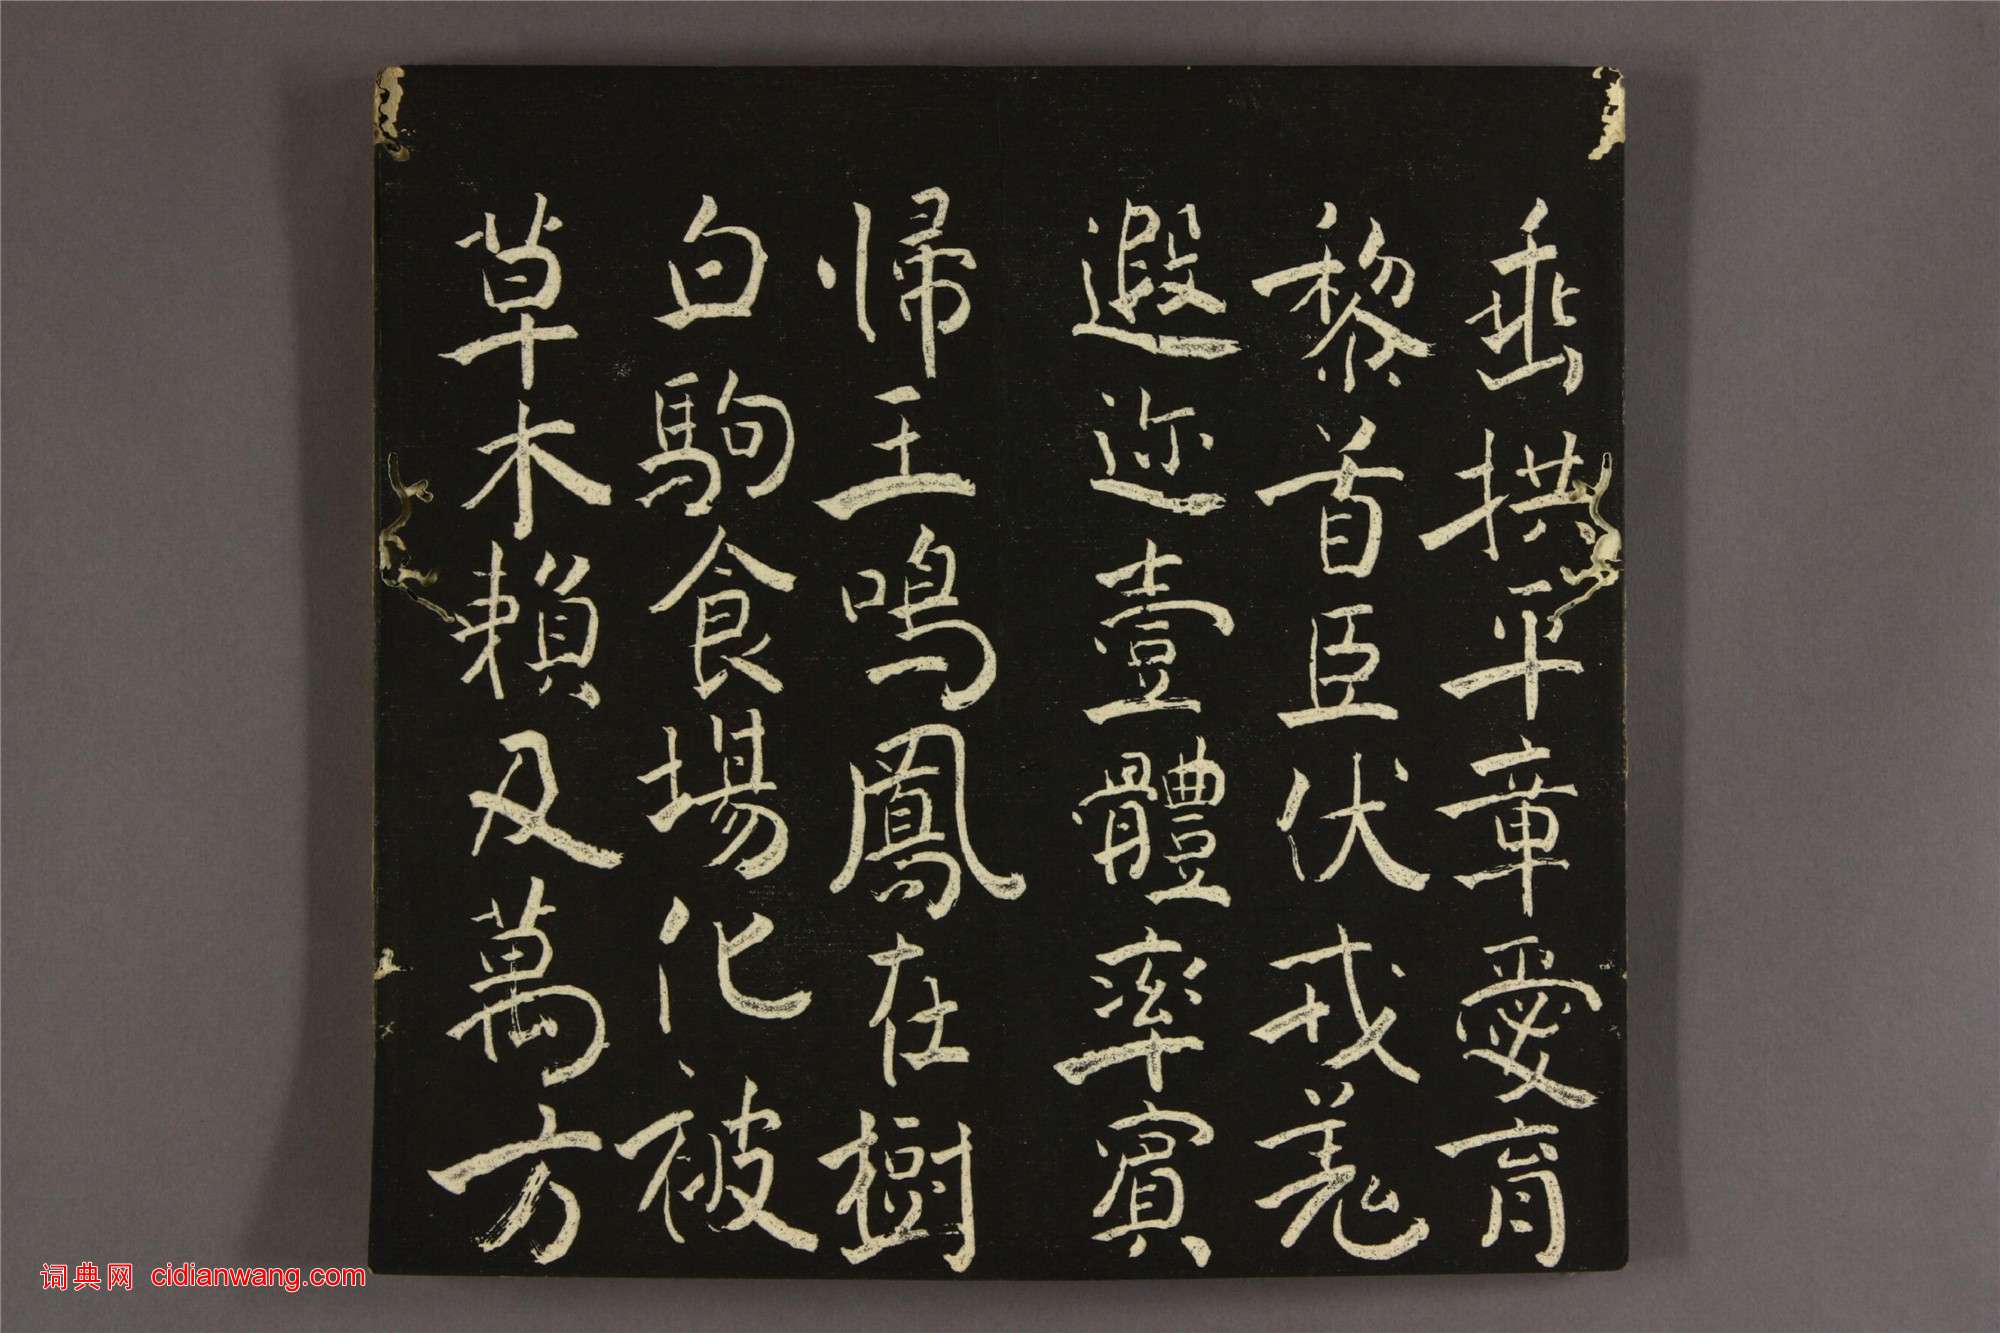 垂拱平章愛育
黎首臣伏戎羌
遐迩壹體率賓
歸王鳴鳳在樹
白駒食場化被
草木賴及萬方
词典网 cidianwang.com